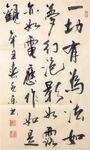 一切有為法如
夢幻泡影如露
亦如電應作如是
觀